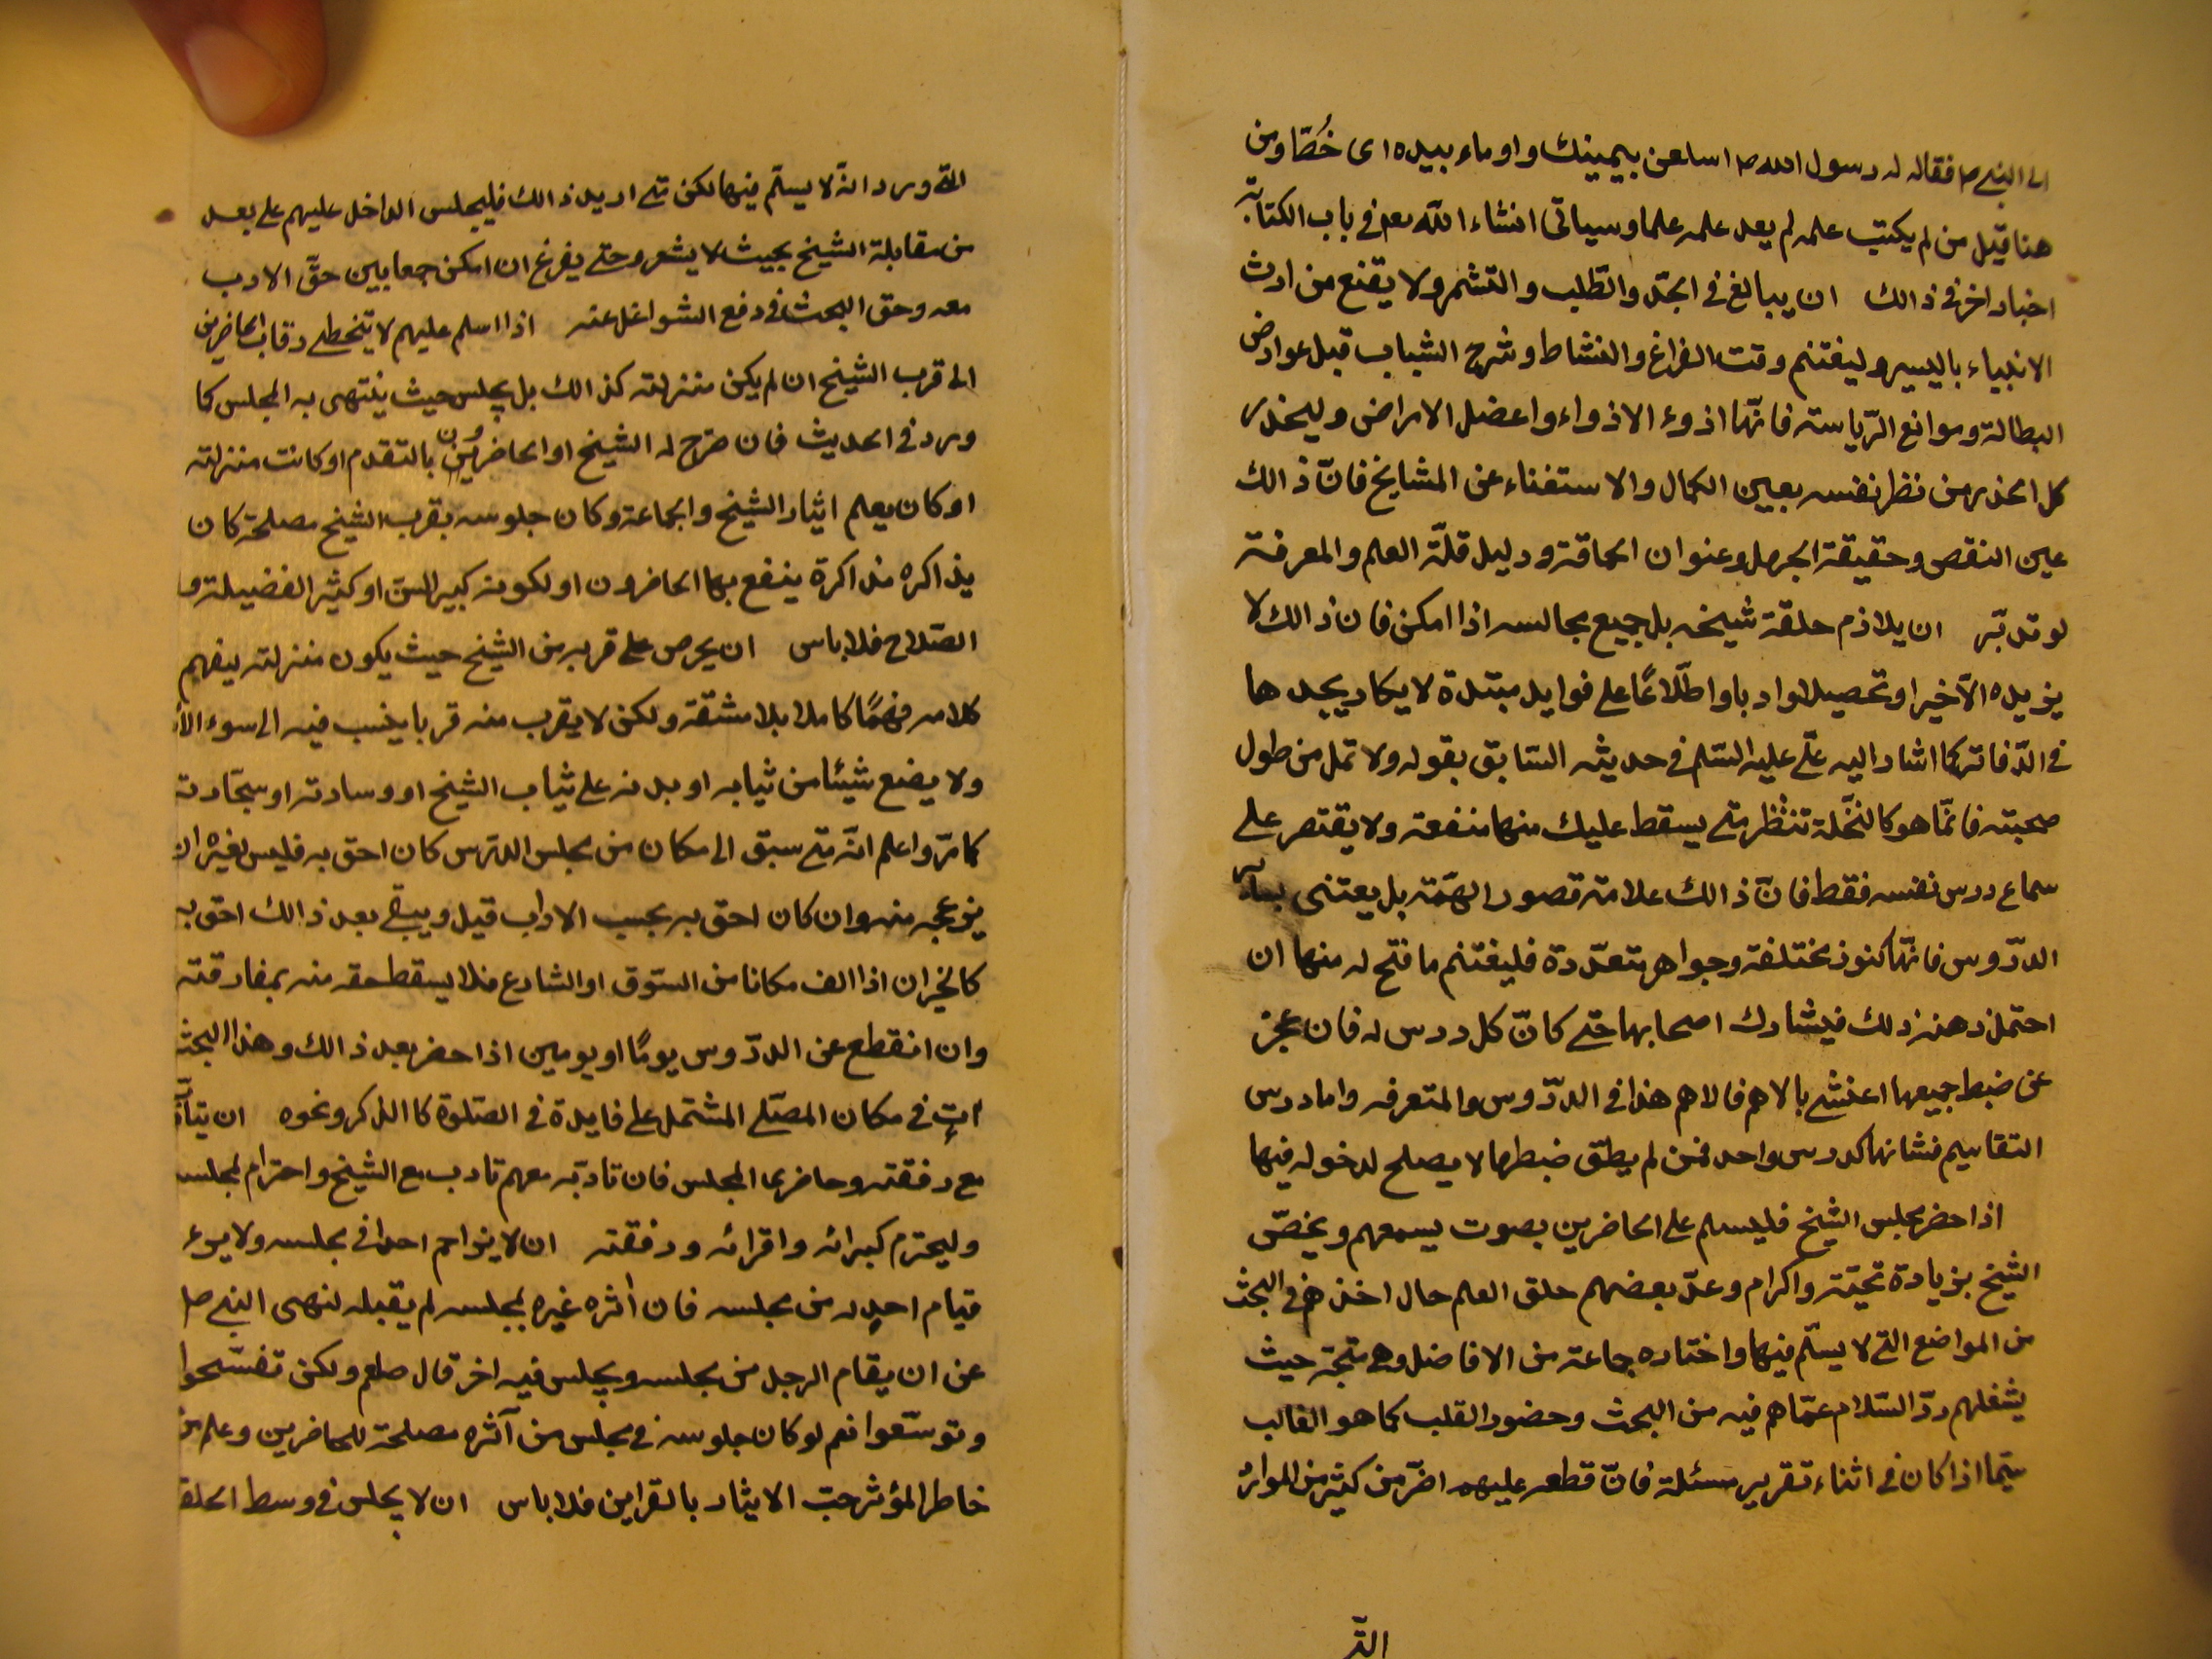 الى النبي ص فقال له رسول الله ص استعن بيمينك واوماء بيده اى خُطّ ومن
هنا قيل من لم يكتب علمه لم يعد علمه علما وسياتى انشاء الله تعم فى باب الكتابة
اخبار اخر فى ذالك ان يبالغ فى الجدّ والطّلب والتشمر ولا يقنع من ارث
الانبياء باليسير وليغتنم وقت الفراغ والنشاط وشرح الشباب قبل عوارض
البطالة وموانع الرّياسة فانّها اذوء الاذواء واعضل الامراض وليحذر
كل الحذر من نظر نفسه بعين الكمال والاستغناء عن المشايخ فانّ ذالك
عين النقص وحقيقة الجهل وعنوان الحماقة ودليل قلّة العلم والمعرفة
لو تدبّر ان يلازم حلقة شيخه بل جميع مجالسه اذا امكن فان ذالك لا
يزيده الّا خيرا وتحصيلا وادبا واطّلاعًا على فوايد مبتدة لا يكاد يجدها
فى الدّفاتر كما اشار اليه علّى عليه السّلم فى حديثه السّابق بقوله ولا تمل من طول
صحبته فانّما هو كالنّخلة تنتظر متى يسقط عليك منها منفعة ولا يقتصر على
سماع درس نفسه فقط فانّ ذالك علامة قصور الهمّة بل يعتنى بسآئر
الدّروس فانّها كنوز مختلفة وجواهر متعدّدة فليغتنم ما فتح له منها ان
احتمل ذهنه ذلك فيشارك اصحابها حتى كانّ كل درس له فان عجز
عن ضبط جميعها اعتنى بالاهم فالاهم هذا فى الدّروس والمتعرفه واما درس
التقاسيم فشانها كدرس واحد فمن لم يطق ضبطها لا يصلح لدخوله فيها
اذا حضر مجلس الشيخ فليسلم على الحاضرين بصوت يسمعهم ويخصّ
الشيخ بزيادة تحيّة واكرام وعدّ بعضهم حلق العلم حال اخذهم فى البحث
من المواضع التى لا يسلّم فيها واختاره جماعة من الافاضل وهو متجه حيث
يشغلهم ردّ السّلام عمّا هم فيه من البحث وحضور القلب كما هو الغالب
سيّما اذا كان فى اثناء تقرير مسئلة فانّ قطعه عليهم اضرّ من كثير من الموارد
التى
التى ورد انّه لا يسلّم فيها لكن متى اريد ذالك فليجلس الداخل عليهم على بعد
من مقابلة الشيخ بحيث لا يشعر وحتى يفرغ ان امكن جمعا بين حقّ الادب
معه وحق البحث فى دفع الشواغل عنه اذا اسلم عليهم لا يتخطى رقاب الحاضرين
الى قرب الشيخ ان لم يكن منزلته كذالك بل يجلس حيث ينتهى به المجلس كما
ورد فى الحديث فان صرّح له الشيخ او الحاضرون بالتقدم او كانت منزلته
او كان يعلم ايثار الشيخ والجماعة وكان جلوسه بقرب الشيخ مصلحة كان
يذاكره مذاكرة ينفع بها الحاضرون او لكونه كبير السّن او كثير الفضيلة و
الصّلاح فلا باس ان يحرص على قربه من الشيخ حيث يكون منزلته ليفهم
كلامه فهمًا كاملا بلا مشقة ولكن لا يقرب منه قربا ينسب فيه الى سوء الأ
ولا يضع شيئا من ثيابه او بدنه على ثياب الشيخ او وسادته او سجّادته
كما مرّ واعلم انّه متى سبق الى مكان من مجلس الدّرس كان احق به فليس لغيره ان
يزعجه منه وان كان احق به بحسب الاداب قيل ويبقى بعد ذالك احق به
كالخبران اذا الف مكانا من السّوق او الشارع فلا يسقط حقه منه بمفارقته
وان انقطع عن الدّروس يومًا او يومين اذا حضر بعد ذالك وهذا البحث
اتٍ فى مكان المصلّى المشتمل على فايدة فى الصّلوة كا الذكر ونحوه ان يتأدّ
مع رفقته وحاضرى المجلس فان تادبّه معهم تادب مع الشيخ واحترام لمجلسه
وليحترم كبرائه واقرانه ورفقته ان لا يزاحم احدا فى مجلسه ولا يوء
قيام احدٍ له من مجلسه فان اٰثره غيره بمجلسه لم يقبله لنهى النبى ص
عن ان يقام الرجل من مجلسه ويجلس فيه اخر قال صلعم ولكن تفسّحوا
وتوسّعوا نعم لو كان جلوسه فى مجلس من آثره مصلحة للحاضرين وعلم من
خاطر المؤثر حبّ الايثار بالقراين فلا باس ان لا يجلس فى وسط الحلقة